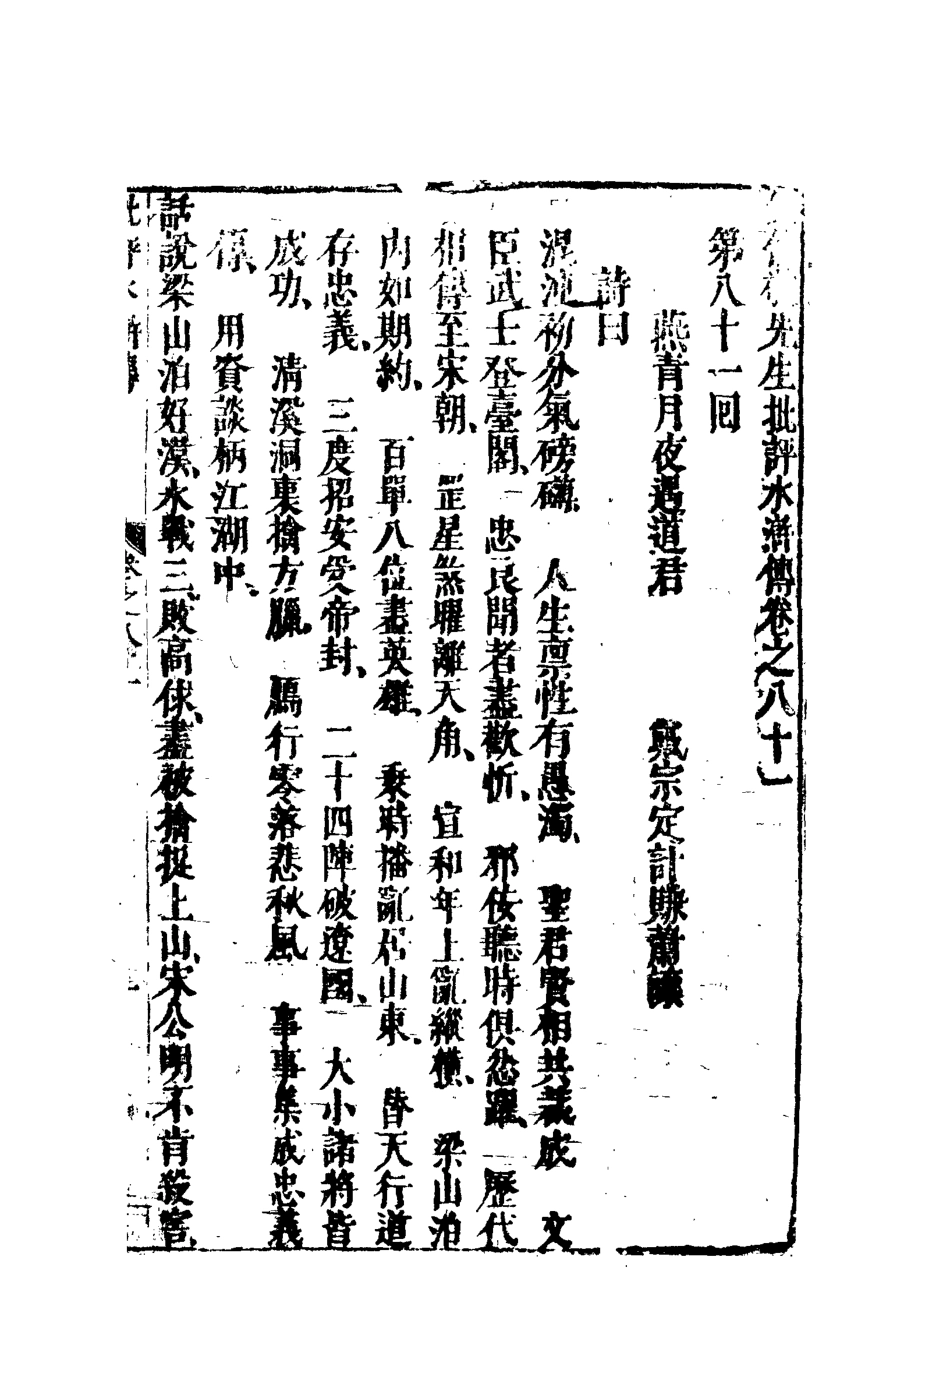 李卓吾先生批評水滸傳卷之八十一
第八十一回
燕青月夜遇道君　戴宗定計賺蕭讓
詩曰
混沌初分氣磅礴　人生禀性有愚濁、　聖君賢相共裁成　文
臣武士登臺閣、　忠良聞者盡歡忻、　邪佞聽時俱忿躍、　歷代
相傳至宋朝、　罡星煞曜離天角、　宣和年上亂縱橫、　梁山泊
內如期約、　百單八位盡英雄、　乘時播亂居山東、　替天行道
存忠義、　三度招安受帝封、　二十四陣破遼國、　大小諸將皆
成功、　清溪洞裏擒方臘、　鴈行零落悲秋風　事事集成忠義
傳、　用資談柄江湖中、
話說梁山泊好漢、水戰三敗高俅、盡被擒捉上山、宋公明不肯殺害、
批評水滸傳　卷之八十一